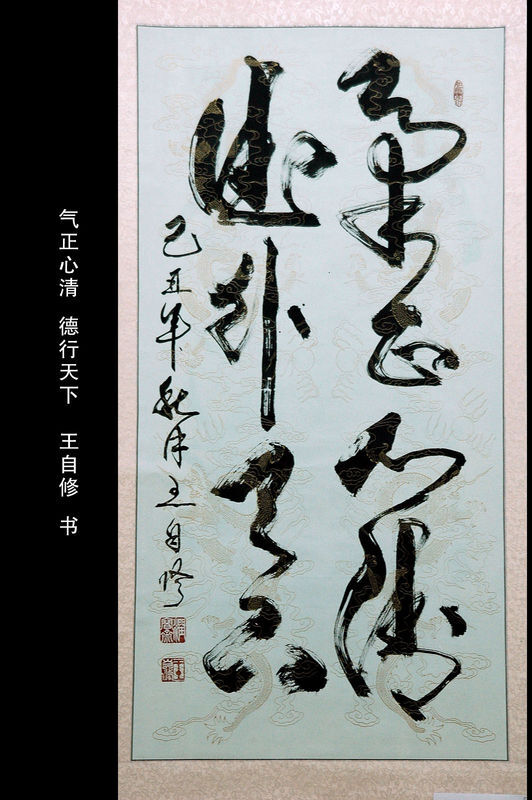 氣正心清
德行天下
己丑年秋月王自修
气正心清 德行天下 王自修 书